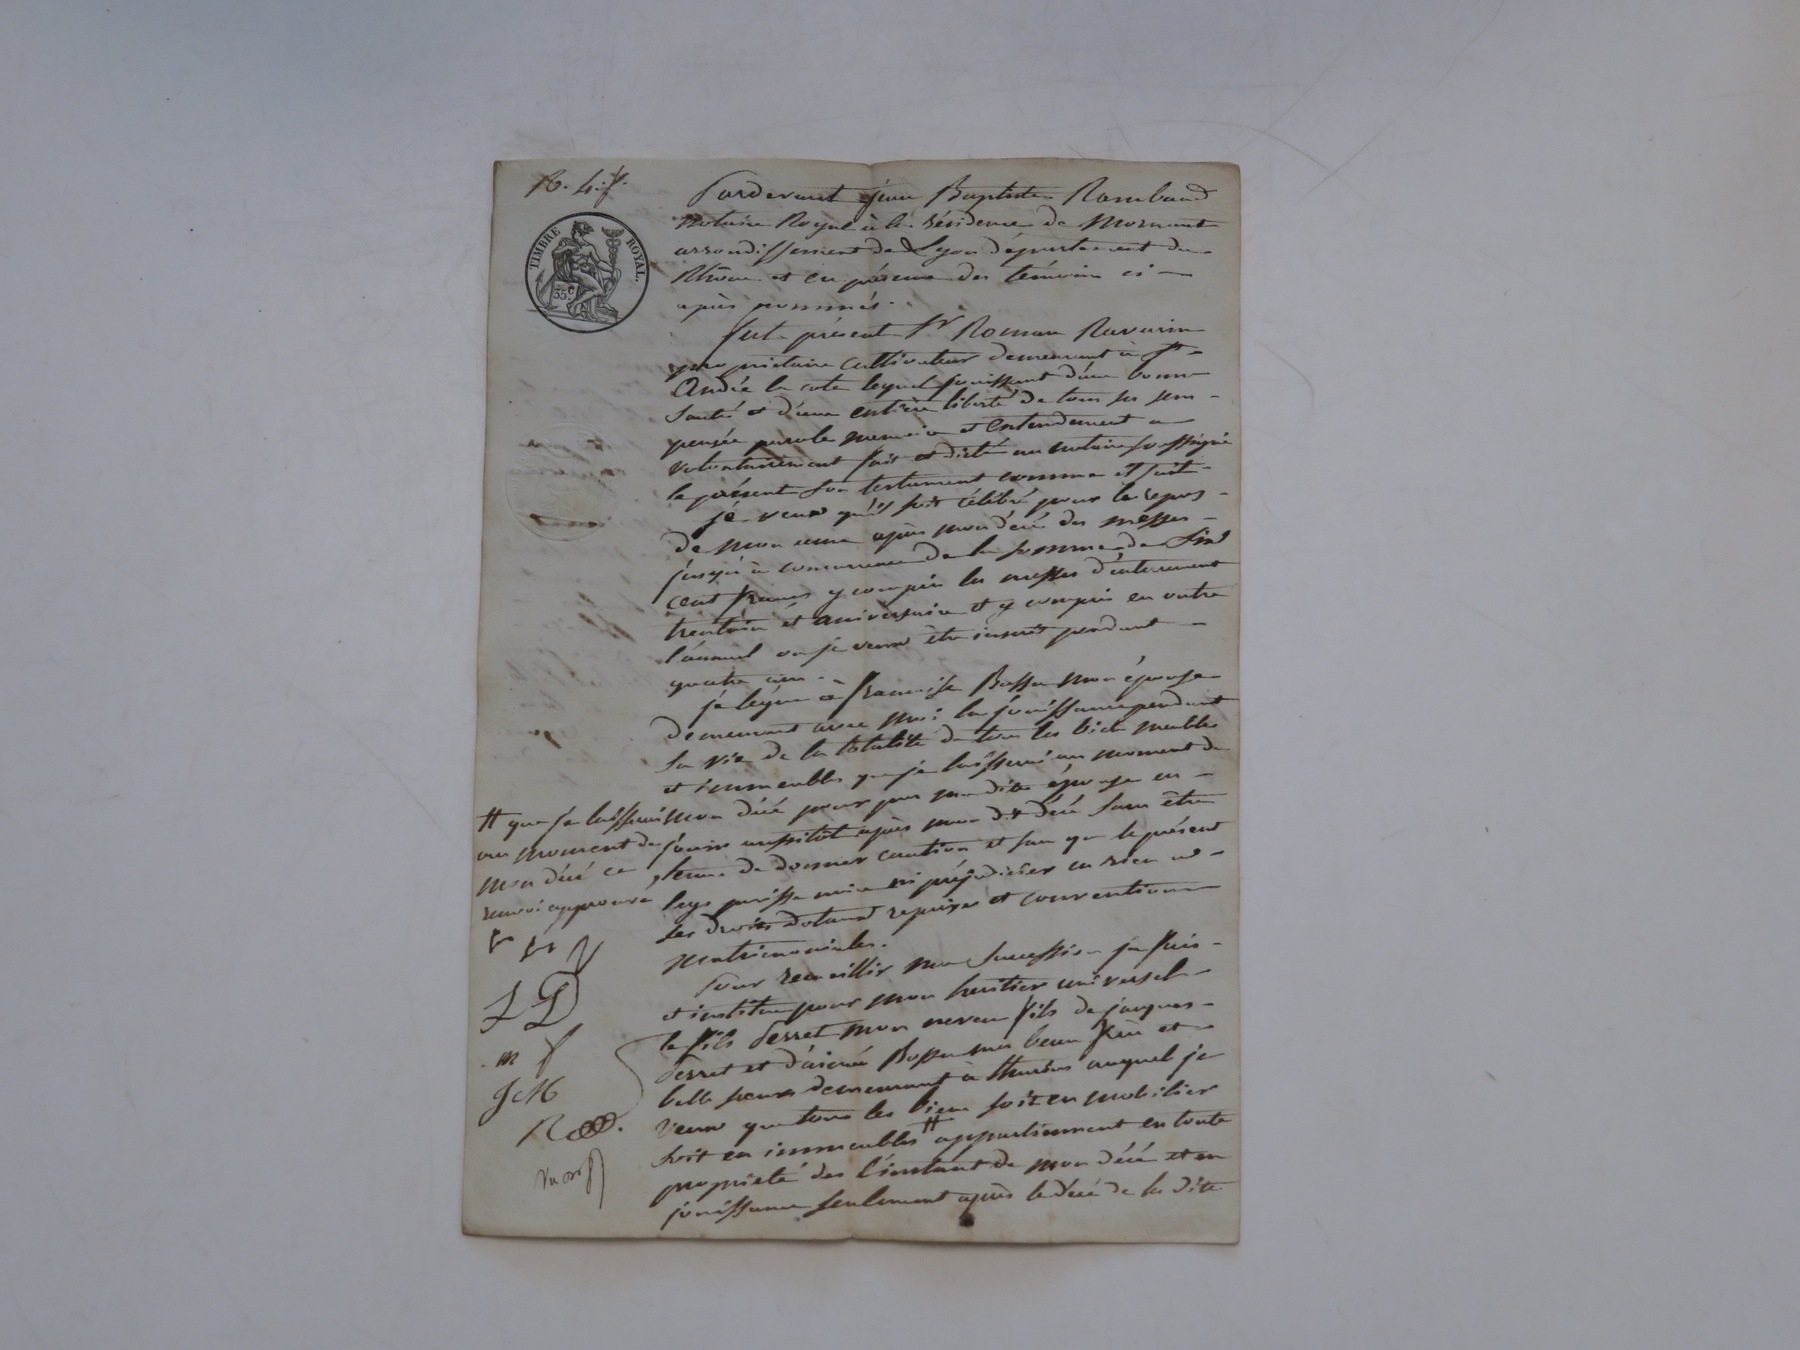 R. 4. f.
TIMBRE ROYAL.
35 c
Pardevant jean Baptiste Rambaud
notaire Royal à la résidence de Mornant
arrondissement de Lyon département du
Rhône et en présence des témoins ci
après nommés.
fut présent Sr Roman Ravarin
propriétaire cultivateur demeurant à St
Andéa la cote lequel jouissant d'une bonne
santé et d'une entière liberté de tous ses sens
pensée parole memoire et entendement a
volontairement fait et dicté au notaire soussigné
le présent son testament comme il suit
je veux qu'il soit célébré pour le repos
de mon ame après mon décé des messes
jusqu'à concurrence de la somme de
cent francs y compris les messes d'enterrement
trentain et aniversaire et y compris en outre
l'annuel ou je veux être inscrit pendant
quatre ans.
je legue à francoise Bossu mon épouse
demeurant avec moi la jouissance pendant
sa vie de la totalité de tous les biens meubles
et immeubles que je laisserai au moment de
mon décé pour par ma dite épouse en
jouir aussitôt après mon dit décé sans être
tenue de donner caution et sans que le présent
legs puisse nuire ni préjudicier en rien a
ses droits dotaux reprises et conventions
matrimoniales.
Pour recueillir ma succession je fais
et institue pour mon heritier universel
le fils Perret mon neveu fils de jacques
Perret et d'aimée Bossu mes beau frère et
belle soeur demeurant à thurins auquel je
veux que tous les biens soit en mobilier
soit en immeubles # appartiennent en toute
propriété des l'instant de mon décé et en
jouissance seulement après le décé de la dite
# que je laisserai
au moment de
mon décé ce
renvoi approuvé
L P
m f
J c M
R